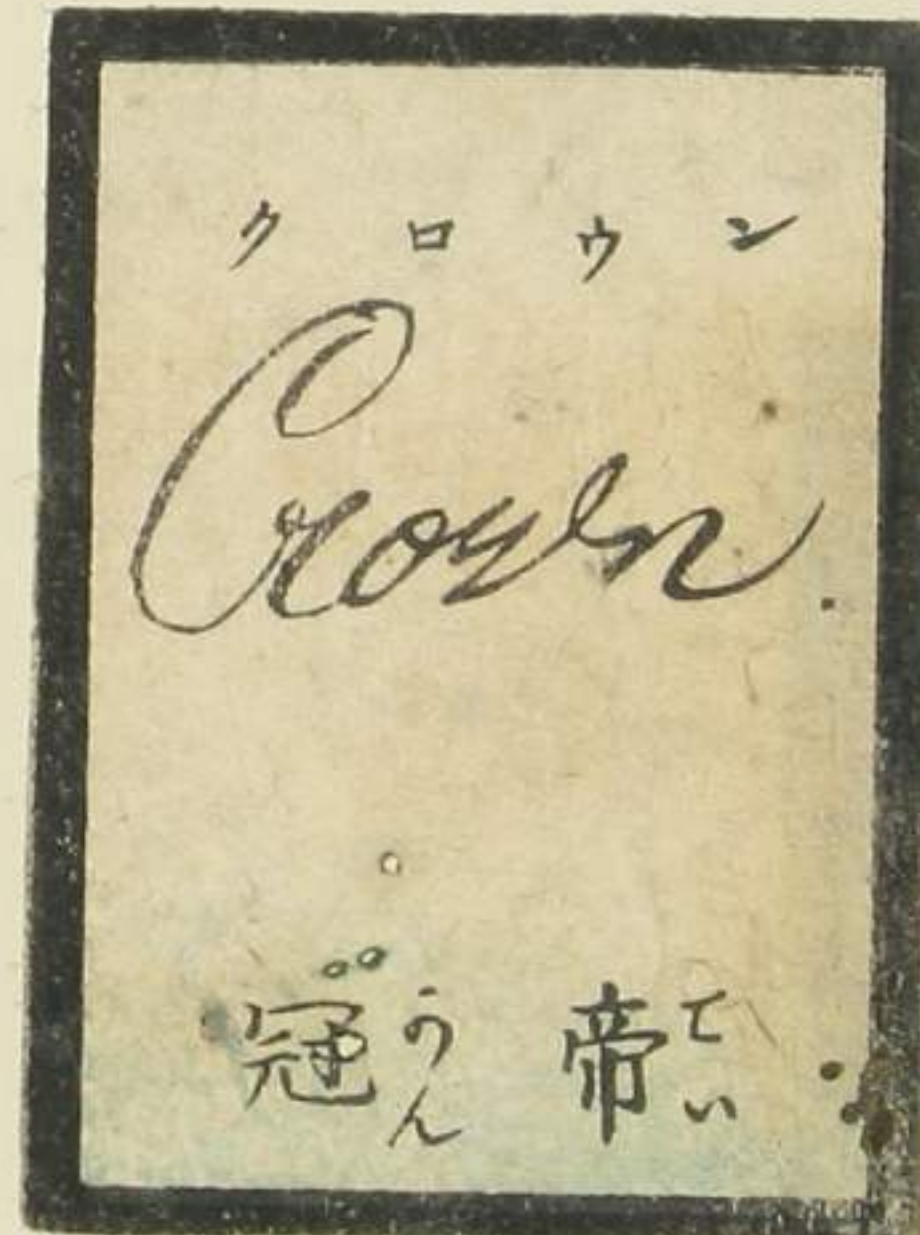 クロウン
Crown.
帝冠
てい
くわん